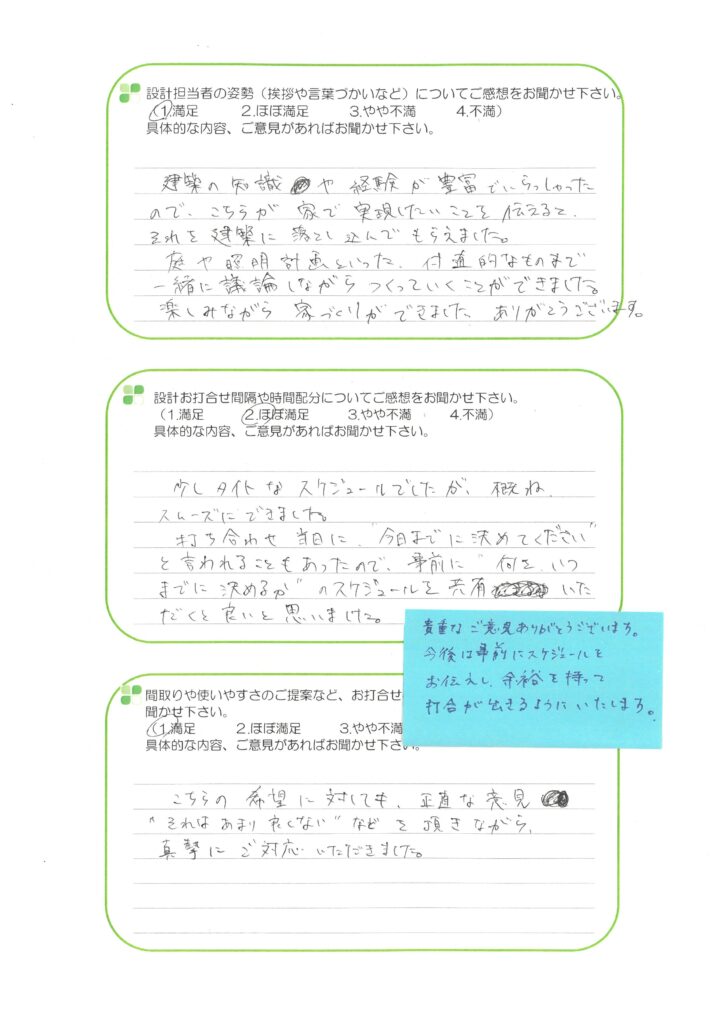 設計担当者の姿勢（挨拶や言葉づかいなど）についてご感想をお聞かせ下さい。
（1.満足 2.ほぼ満足 3.やや不満 4.不満）
具体的な内容、ご意見があればお聞かせ下さい。
建築の知識や経験が豊富でいらっしゃった
ので、こちらが家で実現したいことを伝えると、
それを建築に落とし込んでもらえました。
庭や照明計画といった、付随的なものまで
一緒に議論しながらつくっていくことができました。
楽しみながら家づくりができました。ありがとうございます。
設計お打合せ間隔や時間配分についてご感想をお聞かせ下さい。
（1.満足 2.ほぼ満足 3.やや不満 4.不満）
具体的な内容、ご意見があればお聞かせ下さい。
少しタイトなスケジュールでしたが、概ね
スムーズにできました。
打ち合わせ当日に、"今日までに決めてください"
と言われることもあったので、事前に"何を、いつ
までに決めるか"のスケジュールを共有いた
だくと良いと思いました。
貴重なご意見ありがとうございます。
今後は事前にスケジュールを
お伝えし、余裕を持って
打合が出きるようにいたします。
間取りや使いやすさのご提案など、お打合せ
聞かせ下さい。
（1.満足 2.ほぼ満足 3.やや不満
具体的な内容、ご意見があればお聞かせ下さい。
こちらの希望に対しても、正直な意見
"それはあまり良くない"などを頂きながら、
真摯にご対応いただきました。